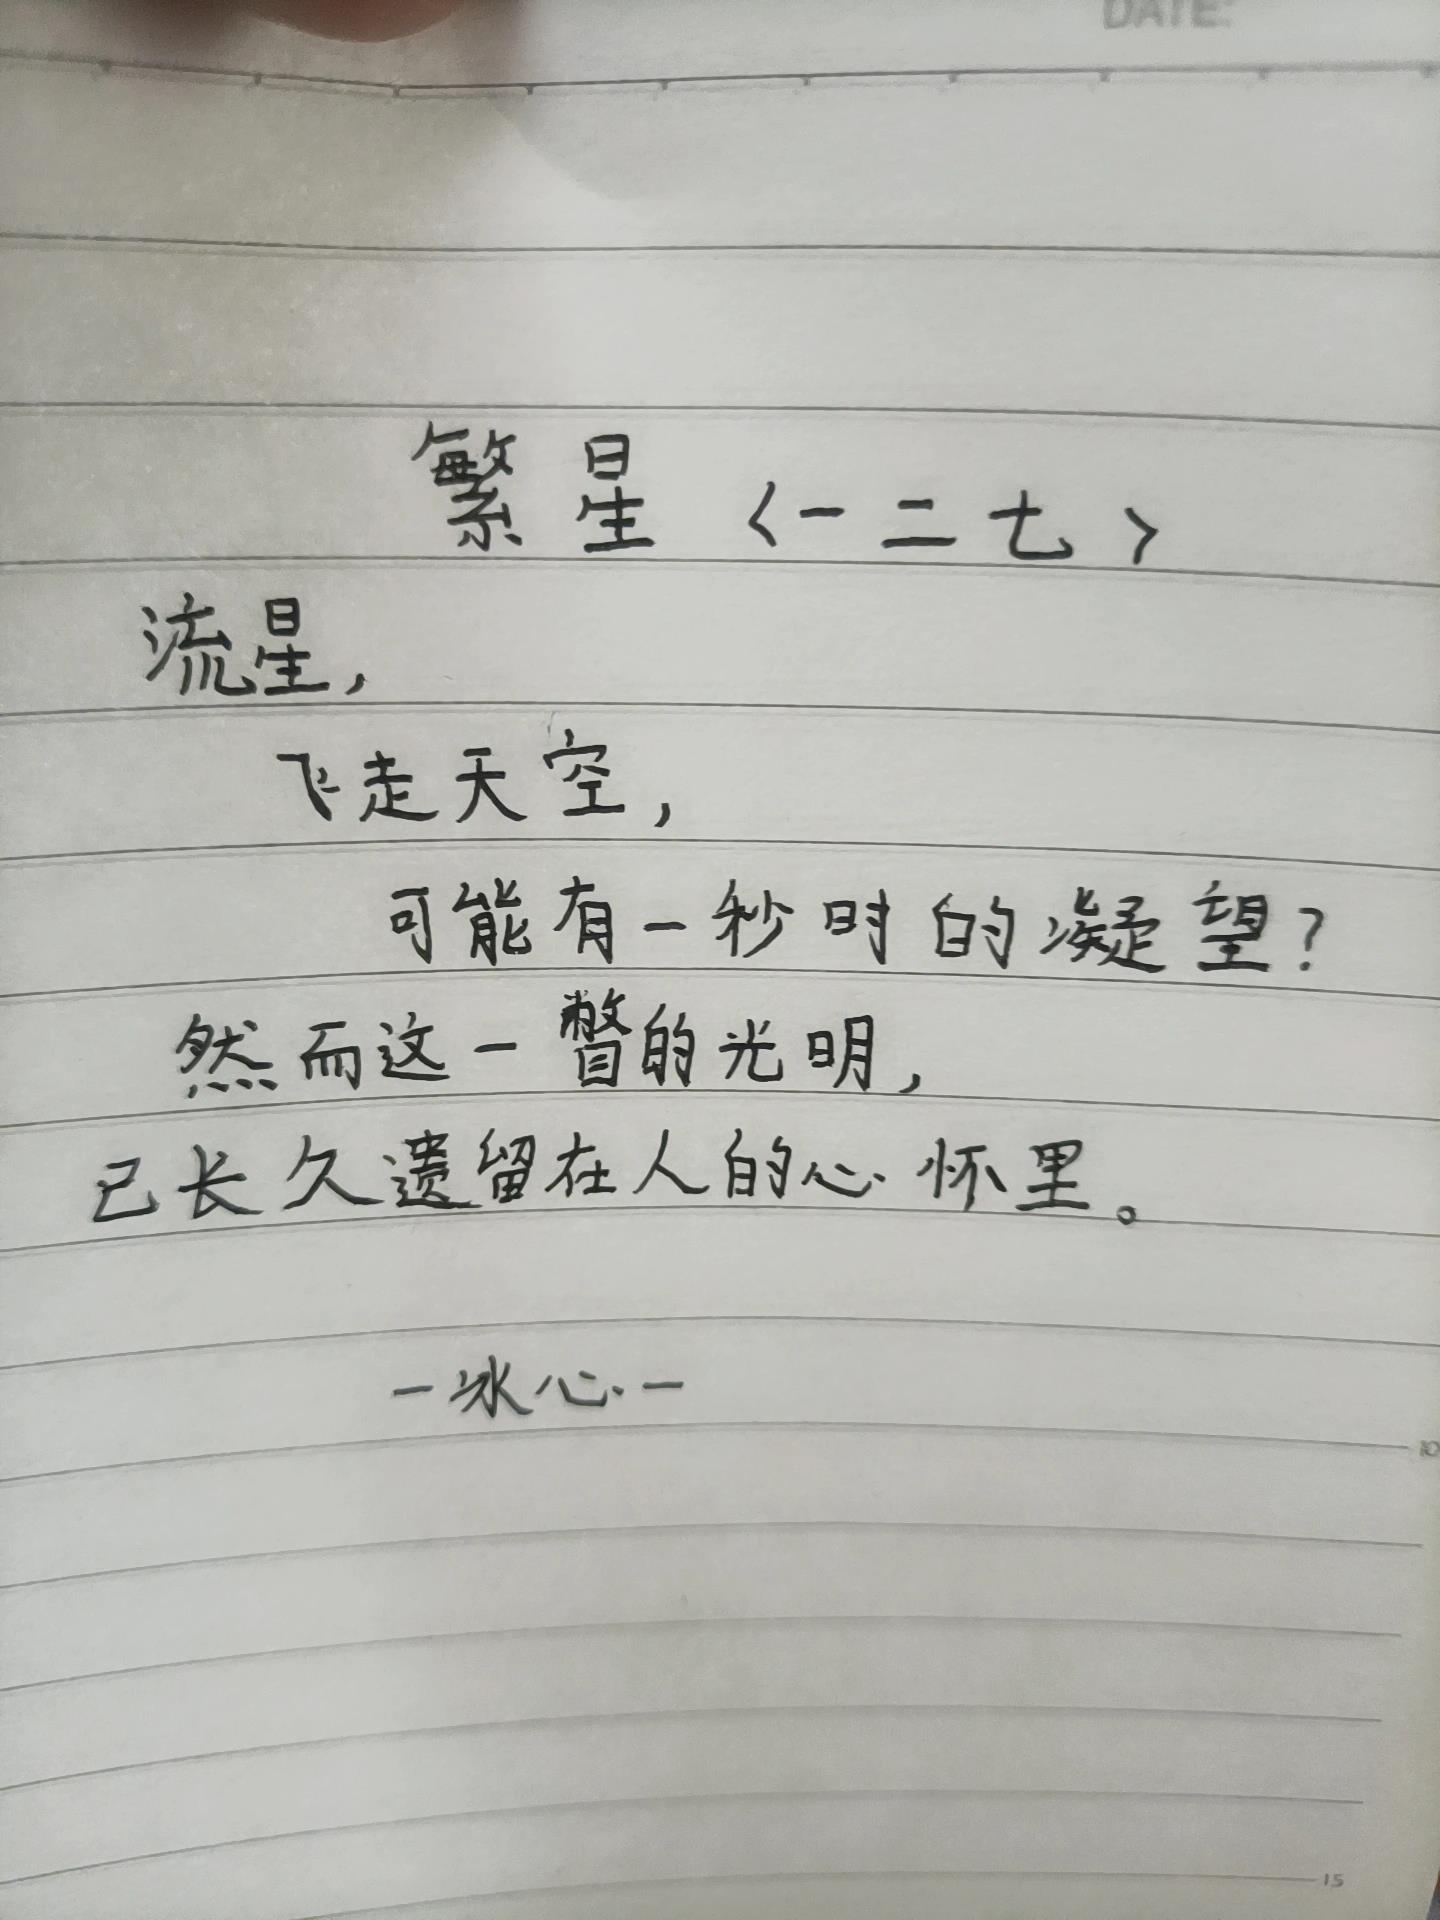 DATE:
繁星〈一二七〉
流星，
飞走天空，
可能有一秒时的凝望？
然而这一瞥的光明，
已长久遗留在人的心怀里。
－冰心－
10
15